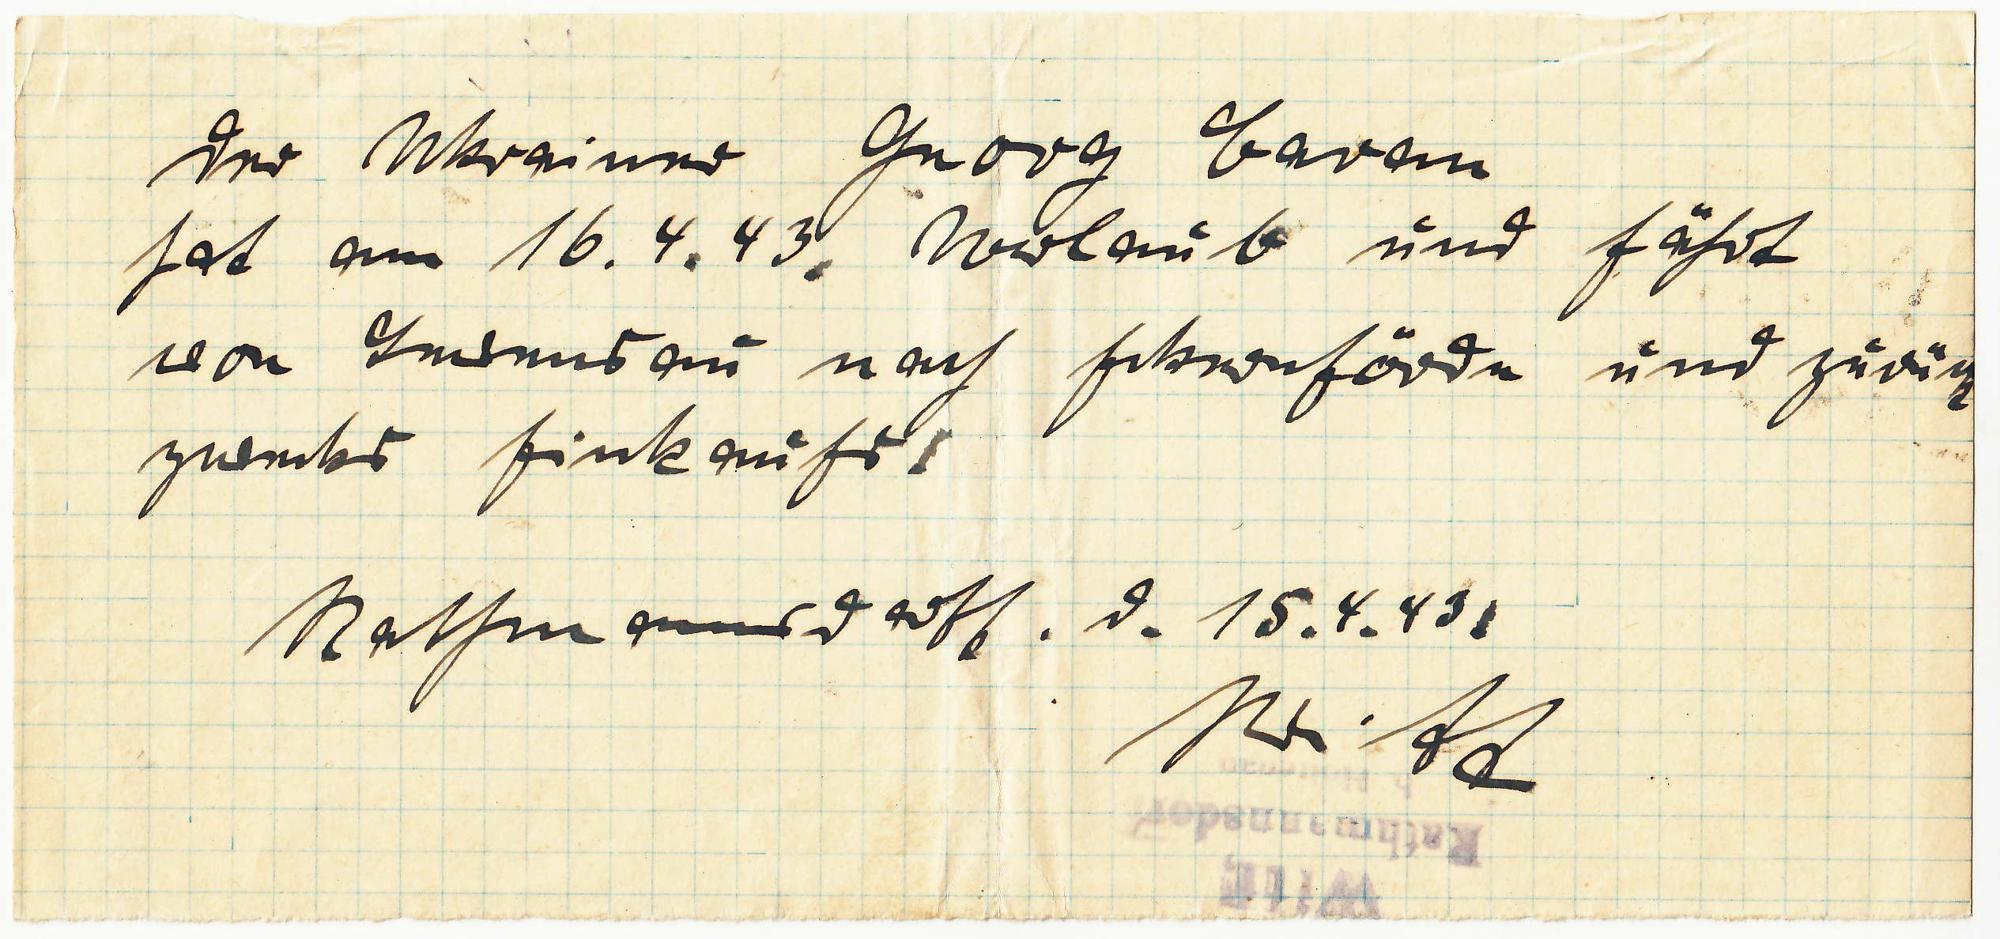 Der Ukrainer Georg Baran
hat am 16.4.43. Urlaub und fährt
von Levensau nach Eckernförde und zurück
zwecks Einkaufs.
Rathmannsdorff. d. 15.4.43.
Witt
Rathmannsdorf
Witt